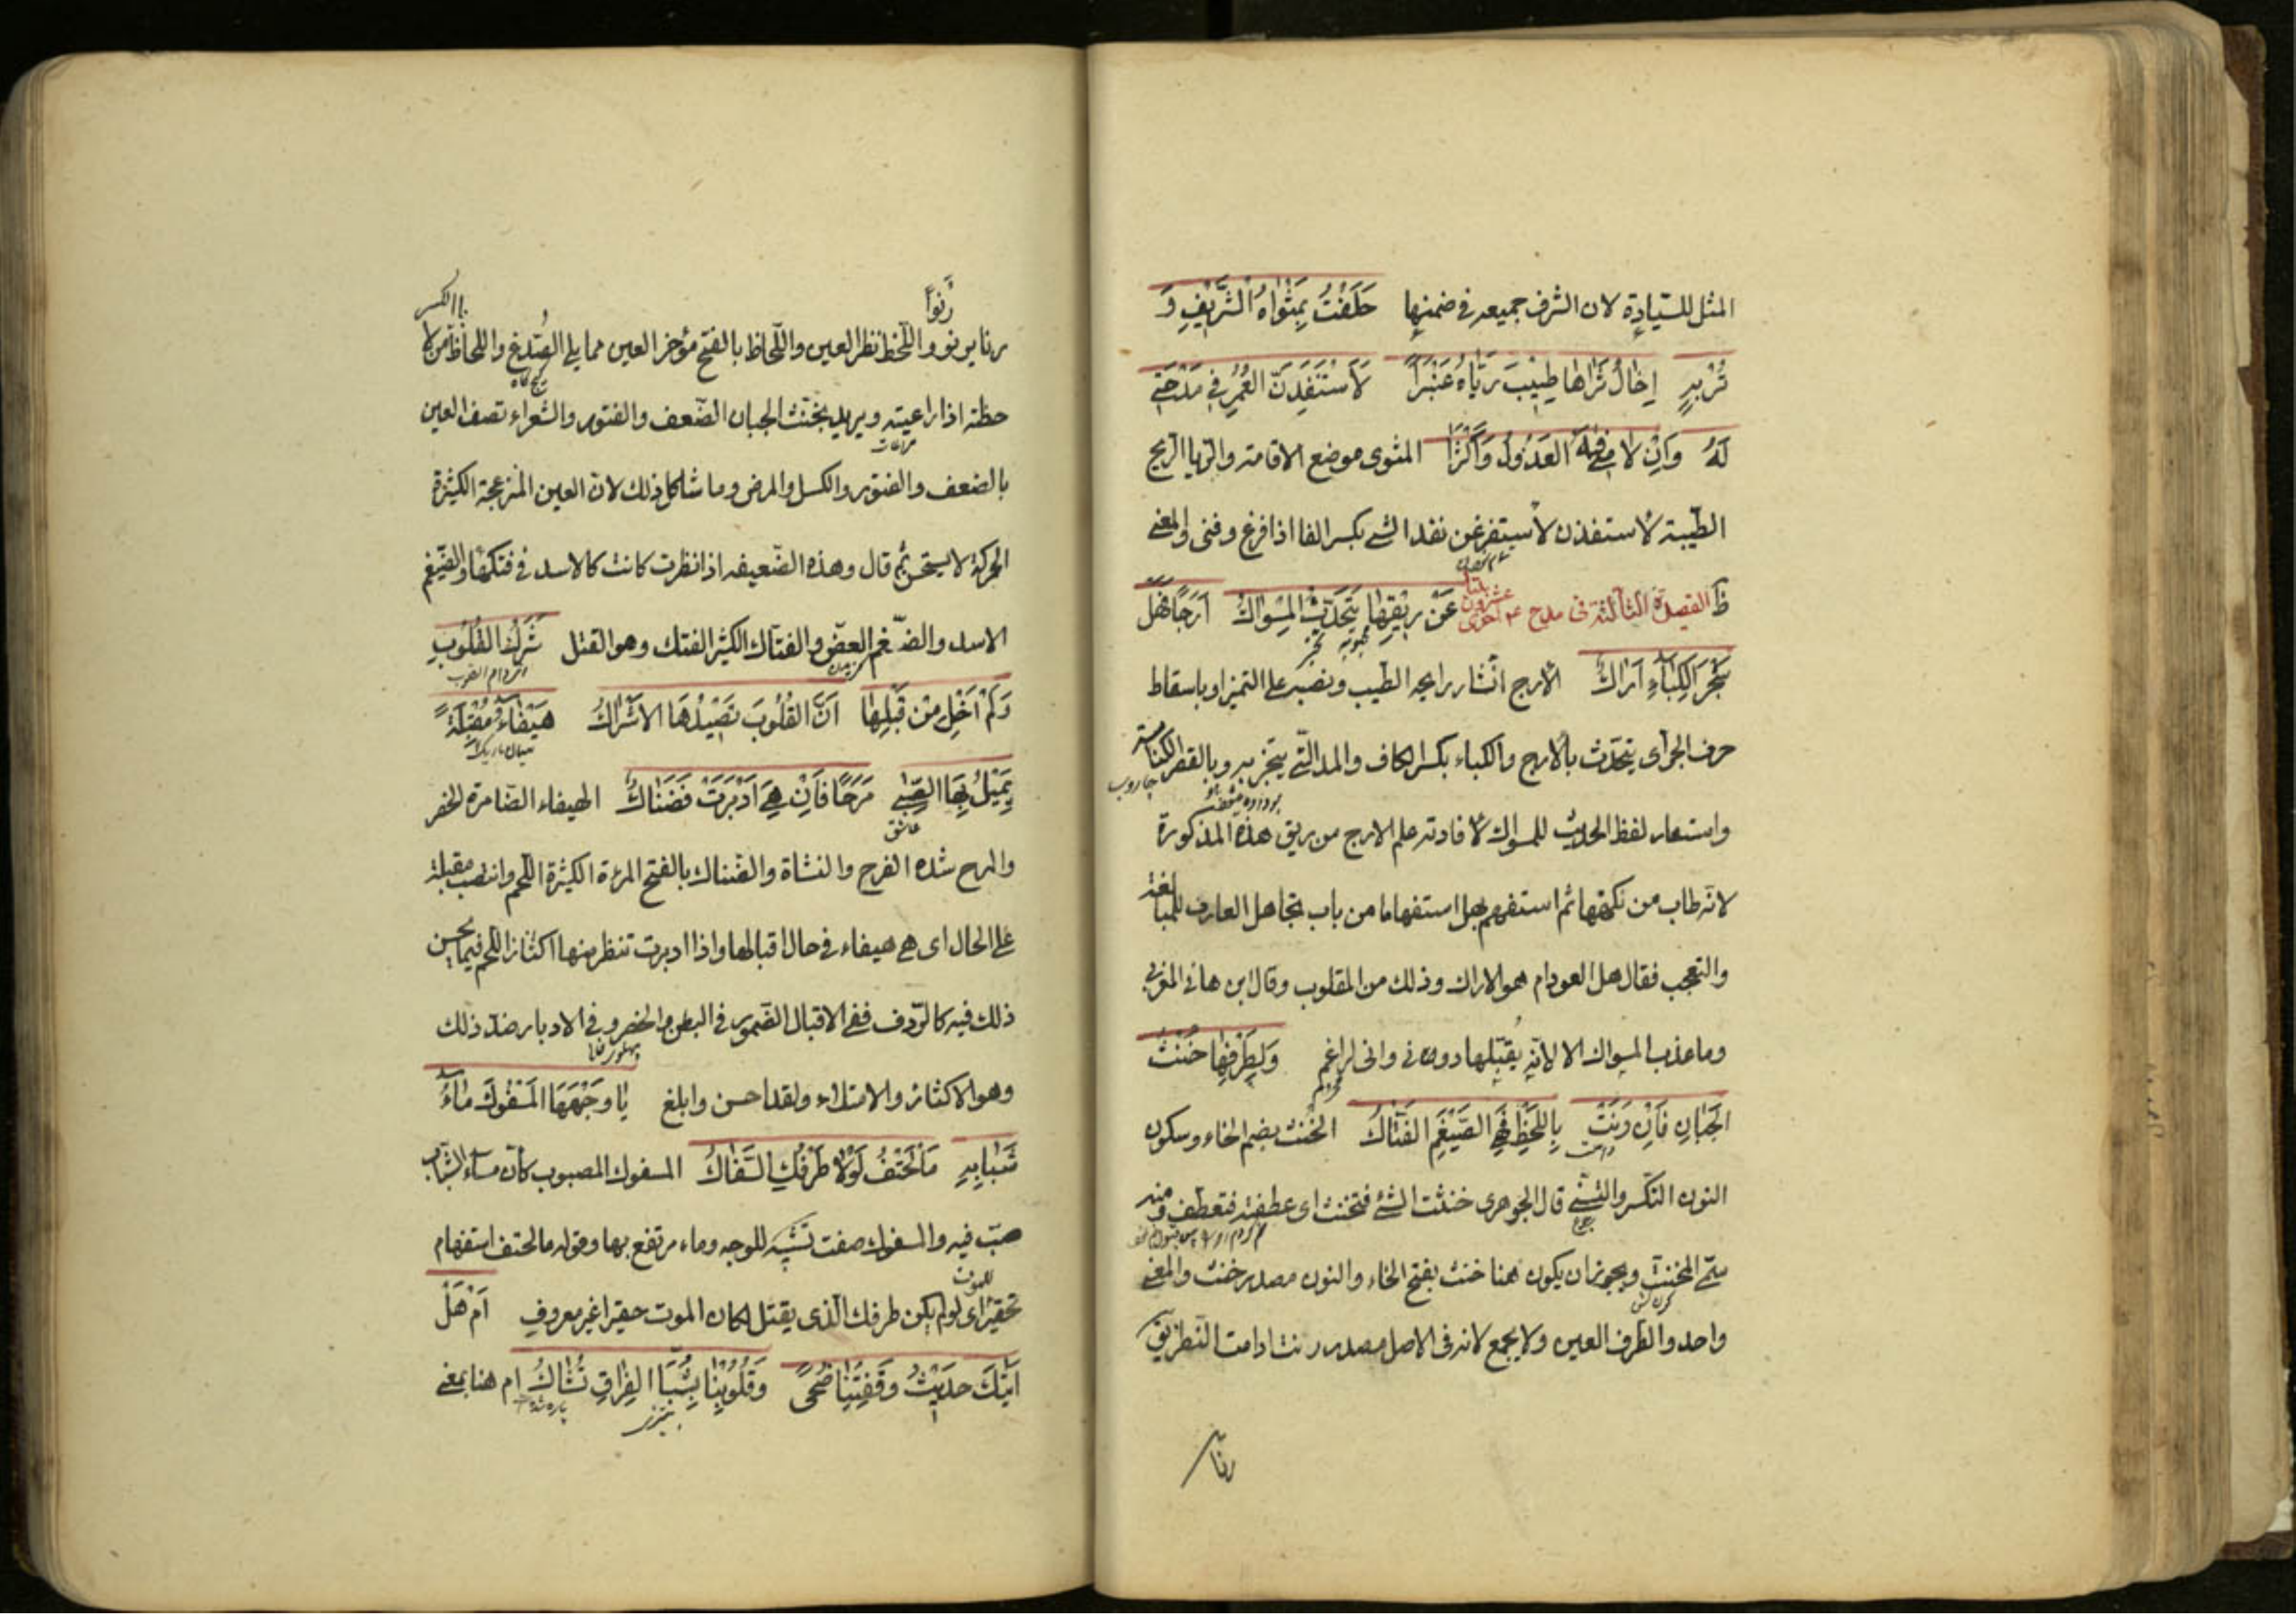 المثل للسيادة لان الشرف جميعه في ضمنها حَلَفْتُ بِمَثْواهُ الشَّرِيفِ وَ
تُرْبِهِ اِخالُ ثَراها طِيْبَ رَيّاهُ عَنْبَراً لَاَسْتَنْفِدَنَّ العُمْرَ في مَدْحَتي
لَهُ وَاِنْ لامَنِي فيهِ العَذُولُ وَاَكْثَرا المثوى موضع الاقامة والريا الريح
الطيبة لاستنفدن لاستفرغن نفد الشي بكسر الفا اذا فرغ وفنى والمعنى
ظ القصيدة الثالثة في مدح عَنْ رِيْقِها يَتَحَدَّثُ المِسْواكُ اَرَجاً فَهَلْ
شَجَرُ الكِباءِ اَراكُ الارج انتشار رايحة الطيب ونصبه على التميز او باسقاط
حرف الجر اى يتحدث بالارج والكباء بكسر الكاف والمد الّتى يتبخر به وبالقصر الكناسة
جاروب
واستعار لفظ الحديث للمسواك لافادته علم الارج من ريق هذه المذكورة
لانه طاب من نكهتها ثم استفهم بهل استفهاما من باب تجاهل العارف للمبالغة
والتعجب فقال هل العود ام هو الاراك وذلك من المقلوب وقال ابن هانى المغربي
وما عذب المسواك الا لانه يقبلها دونى وانى لراغم وَلِطَرْفِها خُنْثُ
الجَبانِ فَاِنْ رَنَتْ بِاللَّحْظِ فَهِيَ الضَّيْغَمُ الفَتّاكُ الخنث بضم الخاء وسكون
النون التكسر والتثنى قال الجوهرى خنثت الشئ فتخنث اى عطفته فتعطف ومنه
سمى المخنث ويجوز ان يكون هنا خنث بفتح الخاء والنون مصدر خنث والمعنى
واحد والطرف العين ولا يجمع لانه فى الاصل مصدر رنت ادامت النظر يق
رنا
رُنُوّاً
باالكسر
رنا يرنو واللحظ نظر العين واللحاظ بالفتح مؤخر العين مما يلي الصُدغ واللحاظ من لا
حظته اذا راعيته ويريد بخنث الجبان الضعف والفتور والشعراء تصف العين
مراعات
بالضعف والفتور والكسل والمرض وما شاكل ذلك لان العين المنزعجة الكثيرة
الحركة لا يستحسن ثم قال وهذه الضعيفه اذا نظرت كانت كالاسد في فتكها والضيغم
الاسد والضّغم العضّ والفتاك الكثير الفتك وهو القتل شَرَكُ القُلُوبِ
وَلَمْ اَخَلْ مِنْ قَبْلِها اَنَّ القُلُوبَ تَصِيْدُهَا الاَشْراكُ هَيْفاءُ مُقْبِلَةً
يَمِيْلُ بِهَا الصِّبى مَرَحاً فَاِنْ هِيَ اَدْبَرَتْ فَضَناكُ الهيفاء الضامرة الخصر
عاشق
والمرح شده الفرح والنشاة والضناك بالفتح المرءة الكثيرة اللحم وانتصب مقبلة
على الحال اى هي هيفاء في حال اقبالها واذا ادبرت تنظر منها اكتناز اللحم فيما يحسن
ذلك فيه كالردف ففى الاقبال الضمور فى البطن والخصر وفى الادبار ضد ذلك
وهو الاكتناز والامتلاء ولقد احسن وابلغ يا وَجْهَهَا المَسْفُوكَ ماءُ
شَبابِهِ مَا الْحَتْفُ لَوْلا طَرْفُكِ السَّفّاكُ المسفوك المصبوب كان ماء الشباب
صب فيه والمسفوك صفت تشبيه للوجه وماء مرتفع بها وقوله ما الحتف استفهام
للموت
تحقير اى لو لم يكن طرفك الذى يقتل لكان الموت حقيرا غير معروف اَمْ هَلْ
اَتٰكَ حَدِيْثُ وَقْفَتِنا ضُحىً وَقُلُوبُنا بِشَبَا الفِراقِ تُشاكُ ام هنا بمعنى